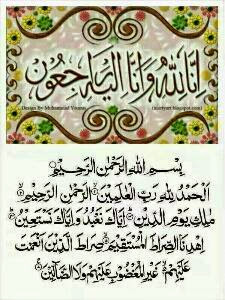 إِنَّا لِلّٰهِ وَإِنَّا إِلَيْهِ رَاجِعُونَ
Design By Muhammad Younas
بِسْمِ اللّٰهِ الرَّحْمٰنِ الرَّحِيْمِ
اَلْحَمْدُ لِلّٰهِ رَبِّ الْعٰلَمِيْنَ الرَّحْمٰنِ الرَّحِيْمِ
مٰلِكِ يَوْمِ الدِّيْنِ اِيَّاكَ نَعْبُدُ وَاِيَّاكَ نَسْتَعِيْنُ
اِهْدِنَا الصِّرَاطَ الْمُسْتَقِيْمَ صِرَاطَ الَّذِيْنَ اَنْعَمْتَ
عَلَيْهِمْ غَيْرِ الْمَغْضُوْبِ عَلَيْهِمْ وَلَا الضَّآلِّيْنَ